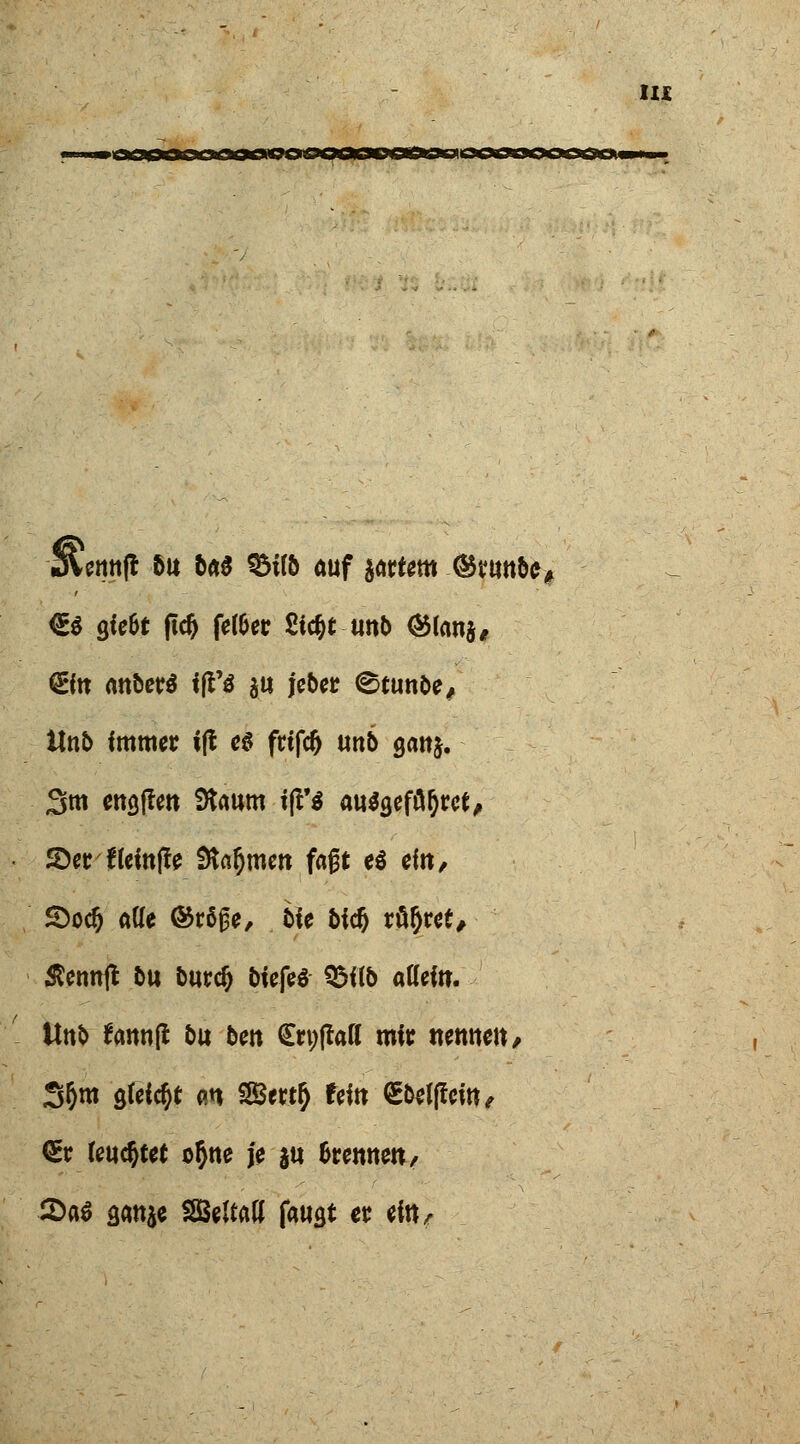 III
Kennst du das Bild auf zartem Grunde,
Es giebt sich selber Licht und Glanz,
Ein anders ist's zu jeder Stunde,
Und immer ist es frisch und ganz.
Im engsten Raum ist's ausgeführet,
Der kleinste Rahmen faßt es ein,
Doch alle Größe, die dich rühret,
Kennst du durch dieses Bild allein.
Und kannst du den Crystall mir nennen,
Ihm gleicht an Werth kein Edelstein,
Er leuchtet ohne je zu brennen,
Das ganze Weltall saugt er ein,